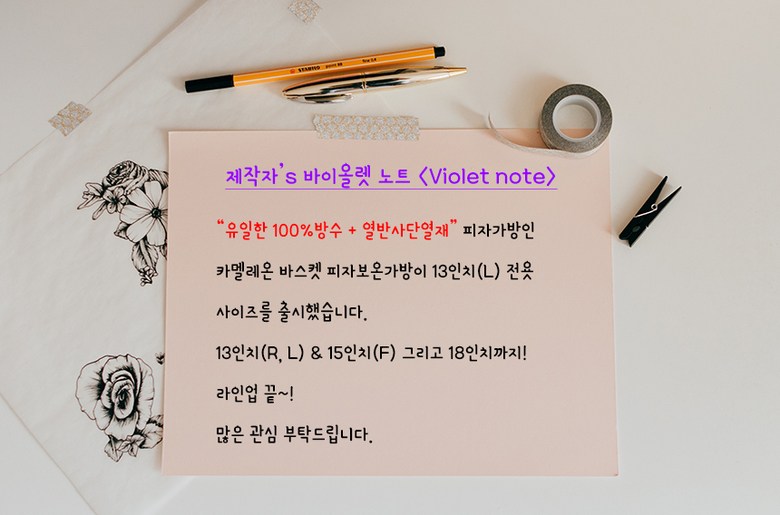 STABILO point 88 fine 0,4
제작자's 바이올렛 노트 <Violet note>
“유일한 100%방수 + 열반사단열재” 피자가방인
카멜레온 바스켓 피자보온가방이 13인치(L) 전욧
사이즈를 출시했습니다.
13인치(R, L) & 15인치(F) 그리고 18인치까지!
라인업 끝~!
많은 관심 부탁드립니다.